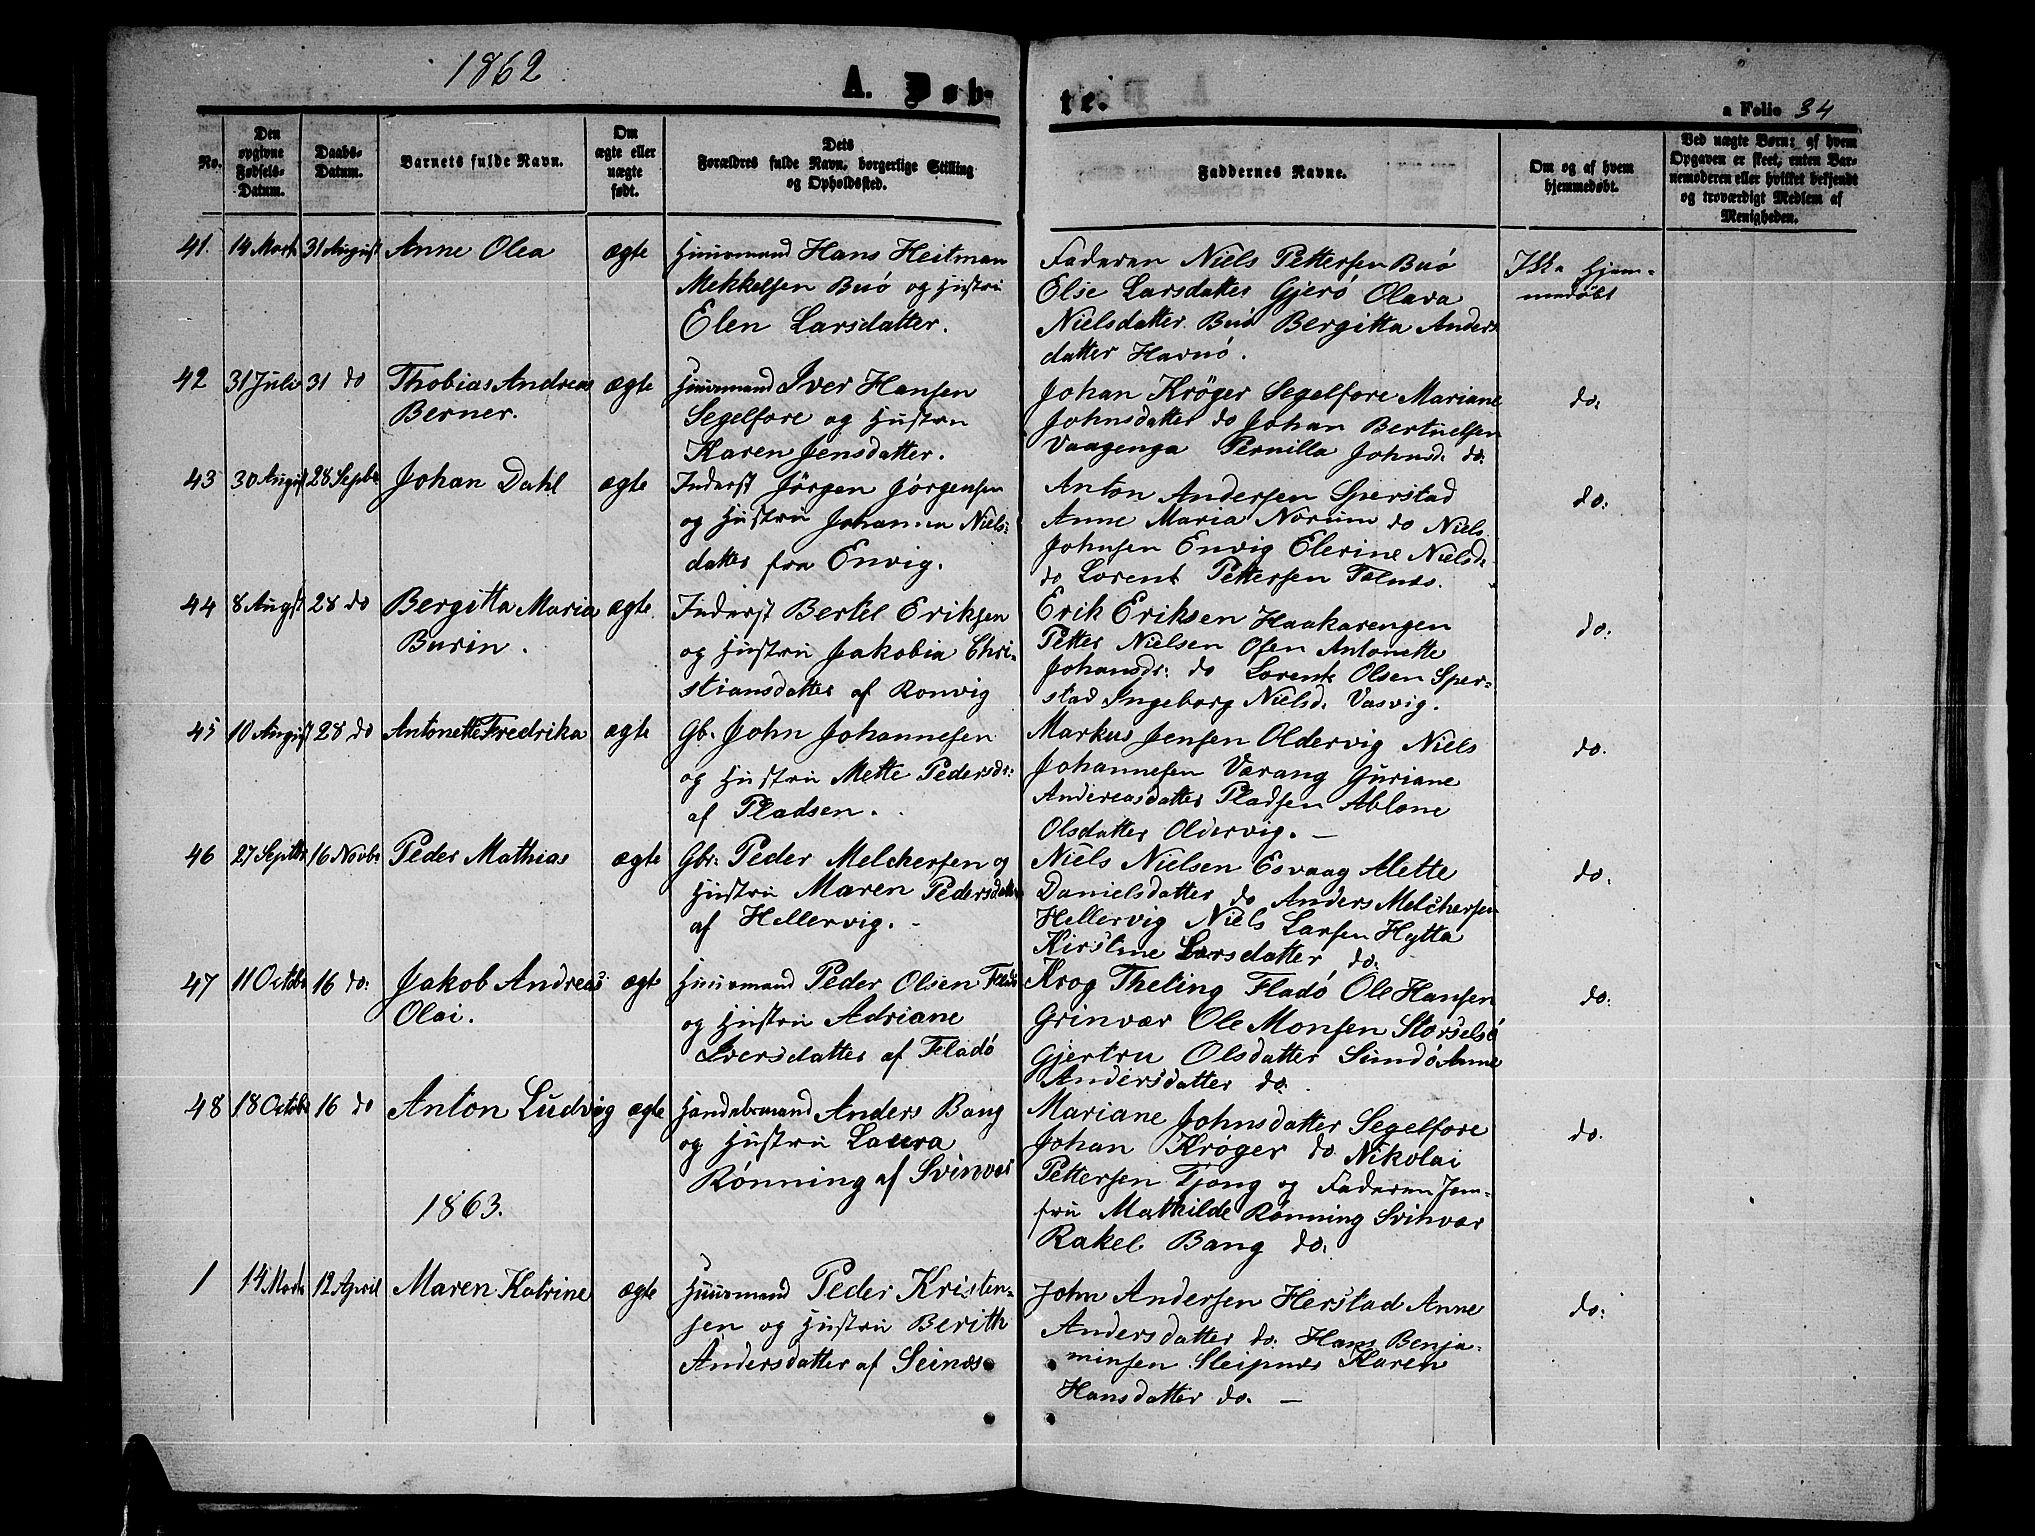 1862
A. Døb-
te.
a Folio 34
No.
Den
opgivne
Fødsels-
Datum.
Daabs-
Datum.
Barnets fulde Navn.
Om
ægte eller
uægte
født.
Dets
Forældres fulde Navn, borgerlige Stilling
og Opholdssted.
Faddernes Navne.
Om og af hvem
hjemmedøbt.
Ved uægte Børn: af hvem
Opgaven er skeet, enten Bar-
nemoderen eller hvilket bekjendt
og troværdigt Medlem af
Menigheden.
41. 14 Marts 31 August Anne Olea ægte Huusmand Hans Heitman
Mekkelsen Buø og Hustru
Elen Larsdatter.
Faderen Niels Pettersen Buø
Else Larsdatter Gjerø Olava
Nielsdatter Buø Bergitta Anders
datter Havnø.
Ikke Hjem-
medøbt
42 31 Juli 31 do Thobias Andreas ægte Huusmand Iver Hansen
Berner.
Segelfore og Hustru
Karen Jensdatter.
Johan Krøger Segelfore Mariane
Johnsdatter do Johan Bertuelsen
Vaagenga Pernilla Johnsd. do.
do.
43 30 August 28 Septbr Johan Dahl ægte Inderst Jørgen Jørgensen
og Hustru Johanna Niels-
datter fra Envig.
Anton Andersen Sperstad
Anne Maria Norum do Niels
Johnsen Envig Elerine Nielsd.
do Lorents Pettersen Tolnes.
do.
44 8 Augst 28 do Bergitta Maria ægte Inderst Bertel Eriksen
Burin.
og Hustru Jakobia Chri-
stiansdatter af Ronvig
Erik Eriksen Haakarengen
Petter Nielsen Osen Antonette
Johansdr. do Lorents Olsen Sper-
stad Ingeborg Nielsd. Vasvig.
do.
45 10 August 28 do Antonette Fredrika ægte Gb. John Johannesen
og Hustru Mette Pedersdr.
af Pladsen.
Markus Jensen Oldervig Niels
Johannesen Værang Guriane
Andreasdatter Pladsen Ablone
Olsdatter Oldervig. —
do.
46 27 Septbr 16 Novbr Peder Mathias ægte Gbr. Peder Melchersen og
Hustru Maren Pedersdatter
af Hellervig. -
Niels Nielsen Esvaag Alette
Danielsdatter do Anders Melchersen
Hellervig Niels Larsen Hytta
Kirstine Larsdatter do.
do.
47 11 Octobr 16 do. Jakob Andreas ægte Huusmand Peder Olsen Fladø
Olai.
og Hustru Adriane
Iversdatter af Fladø
Krog Theling Fladø Ole Hansen
Grinvær Ole Monsen Storselsø
Gjertru Olsdatter Sundø Anne
Andersdatter do.
do.
48 18 Octobr 16 do Anton Ludvig ægte Handelsmand Anders Bang
og Hustru Laura
Rønning af Svinvær
Mariane Johnsdatter Segelfore
Johan Krøger do Nikolai
Pettersen Tjong og Faderen Jom-
fru Mathilde Rønning Svinvær
Rakel Bang do.
do.
1863.
1 14 Marts 12 April Maren Katrine ægte Huusmand Peder Kristen-
sen og Hustru Berith
Andersdatter af Seines
John Andersen Herstad Anne
Andersdatter do. Hans Benja-
minsen Sleipnes Karen
Hansdatter do. —
do.